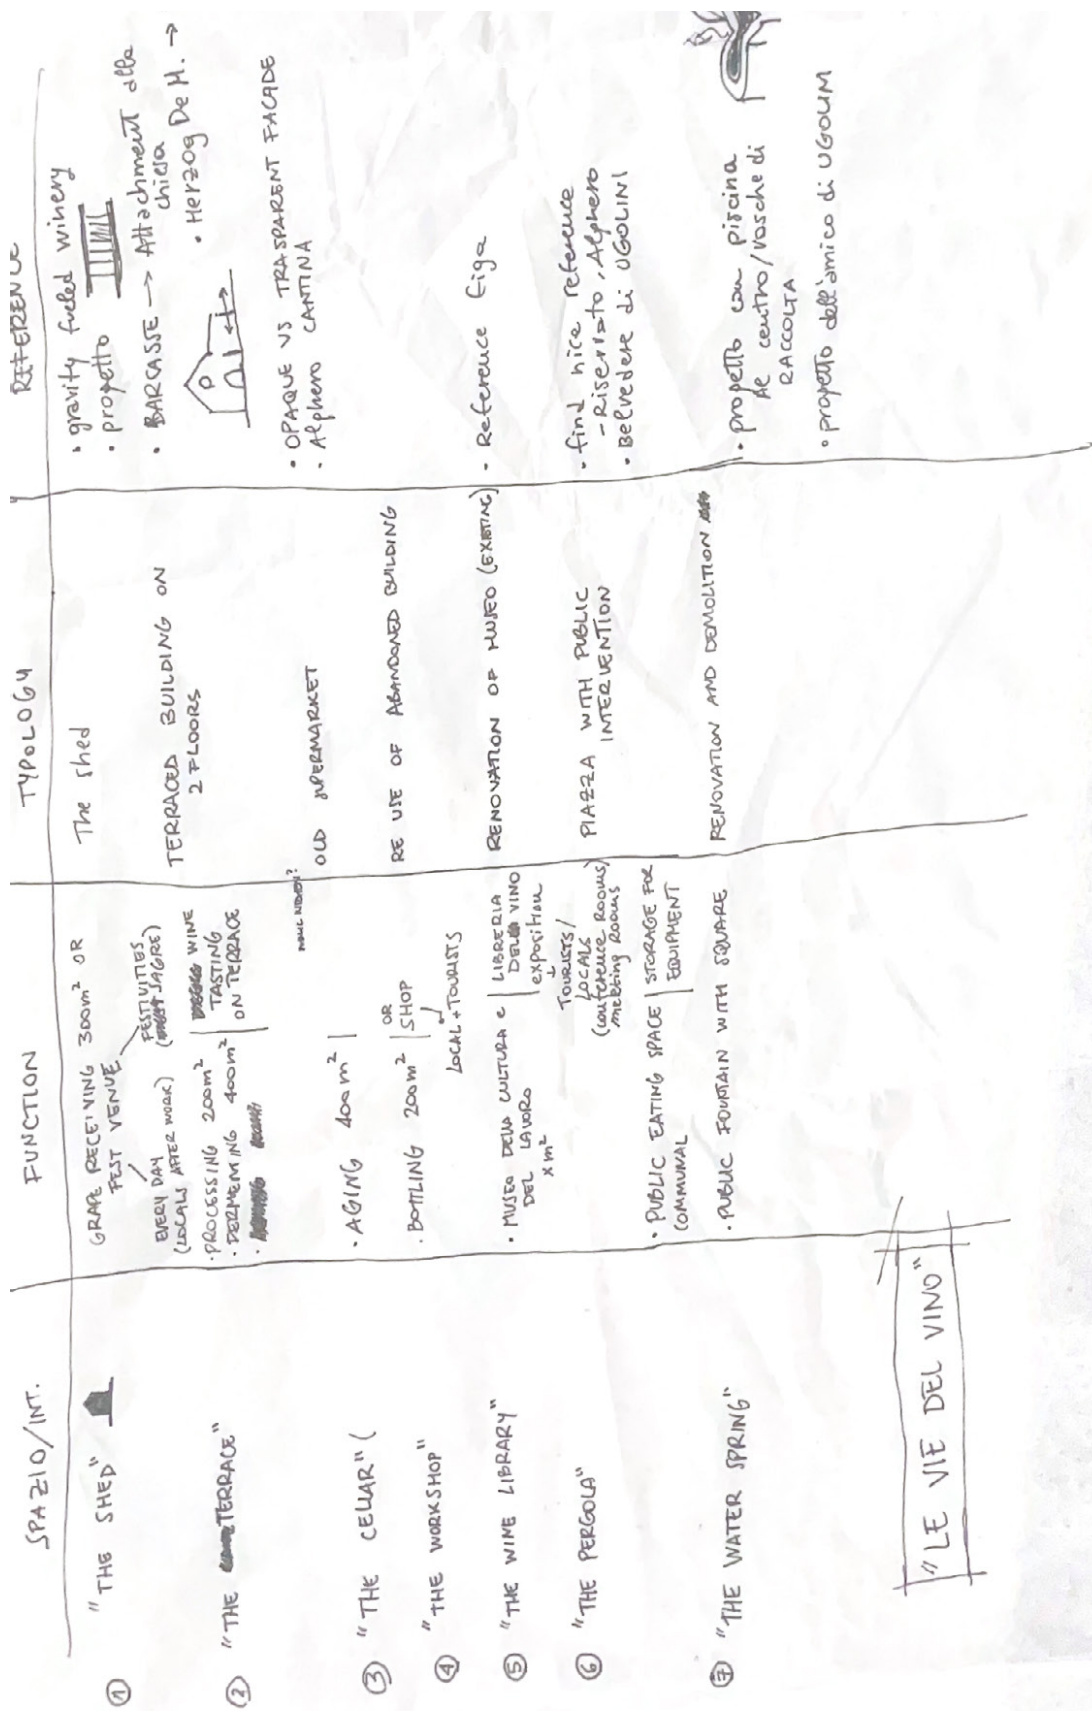 SPAZIO/INT.
FUNCTION
TYPOLOGY
REFERENCE
1
"THE SHED"
GRAPE RECEIVING 300m² OR
FEST VENUE
EVERY DAY
(LOCALS AFTER WORK)
FESTIVITIES
SAGRE)
The shed
• gravity fueled winery
• progetto
• BARCASSE → Attachment alla
chiesa
• Herzog De M. →
2
"THE TERRACE"
• PROCESSING 200m²
• DERMENING 400m²
WINE
TASTING
ON TERRACE
TERRACED BUILDING ON
2 FLOORS
• OPAQUE VS TRASPARENT FACADE
• Alphero CANTINA
3
"THE CELLAR" (
• AGING 400m²
OLD SUPERMARKET
4
"THE WORKSHOP"
• BOTTLING 200m²
OR
SHOP
LOCAL + TOURISTS
RE USE OF ABANDONED BUILDING
5
"THE WINE LIBRARY"
• MUSEO DELLA CULTURA e
DEL LAVORO
x m²
LIBRERIA
DEL VINO
exposition
TOURISTS/
LOCALS
(conference rooms)
meeting rooms
RENOVATION OF MUSEO (EXISTING)
• Reference figa
6
"THE PERGOLA"
• PUBLIC EATING SPACE
COMMUNAL
STORAGE FOR
EQUIPMENT
PIAZZA WITH PUBLIC
INTERVENTION
• find nice reference
- Riservato, Alphero
• Belvedere di UGOLINI
7
"THE WATER SPRING"
• PUBLIC FOUNTAIN WITH SQUARE
RENOVATION AND DEMOLITION
• progetto con piscina
Ae centro/vasche di
RACCOLTA
• progetto dell'amico di UGOLINI
"LE VIE DEL VINO"